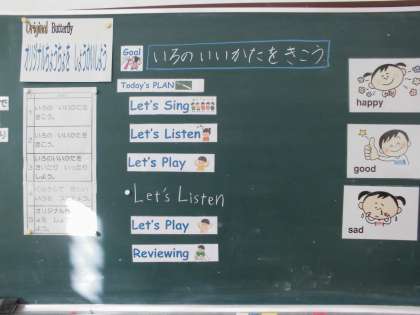 Original Butterfly
オリジナルちょうちょを しょうかいしよう
で
り
いろの いいかたを
きこう。
いろの いいかたを
きこう。
いろのいいかたを
きいたり いったり
しよう。
オリジナル
しよう。
Goal
いろのいいかたをきこう
Today's PLAN
Let's Sing
Let's Listen
Let's Play
・Let's Listen
Let's Play
Reviewing
happy
good
sad